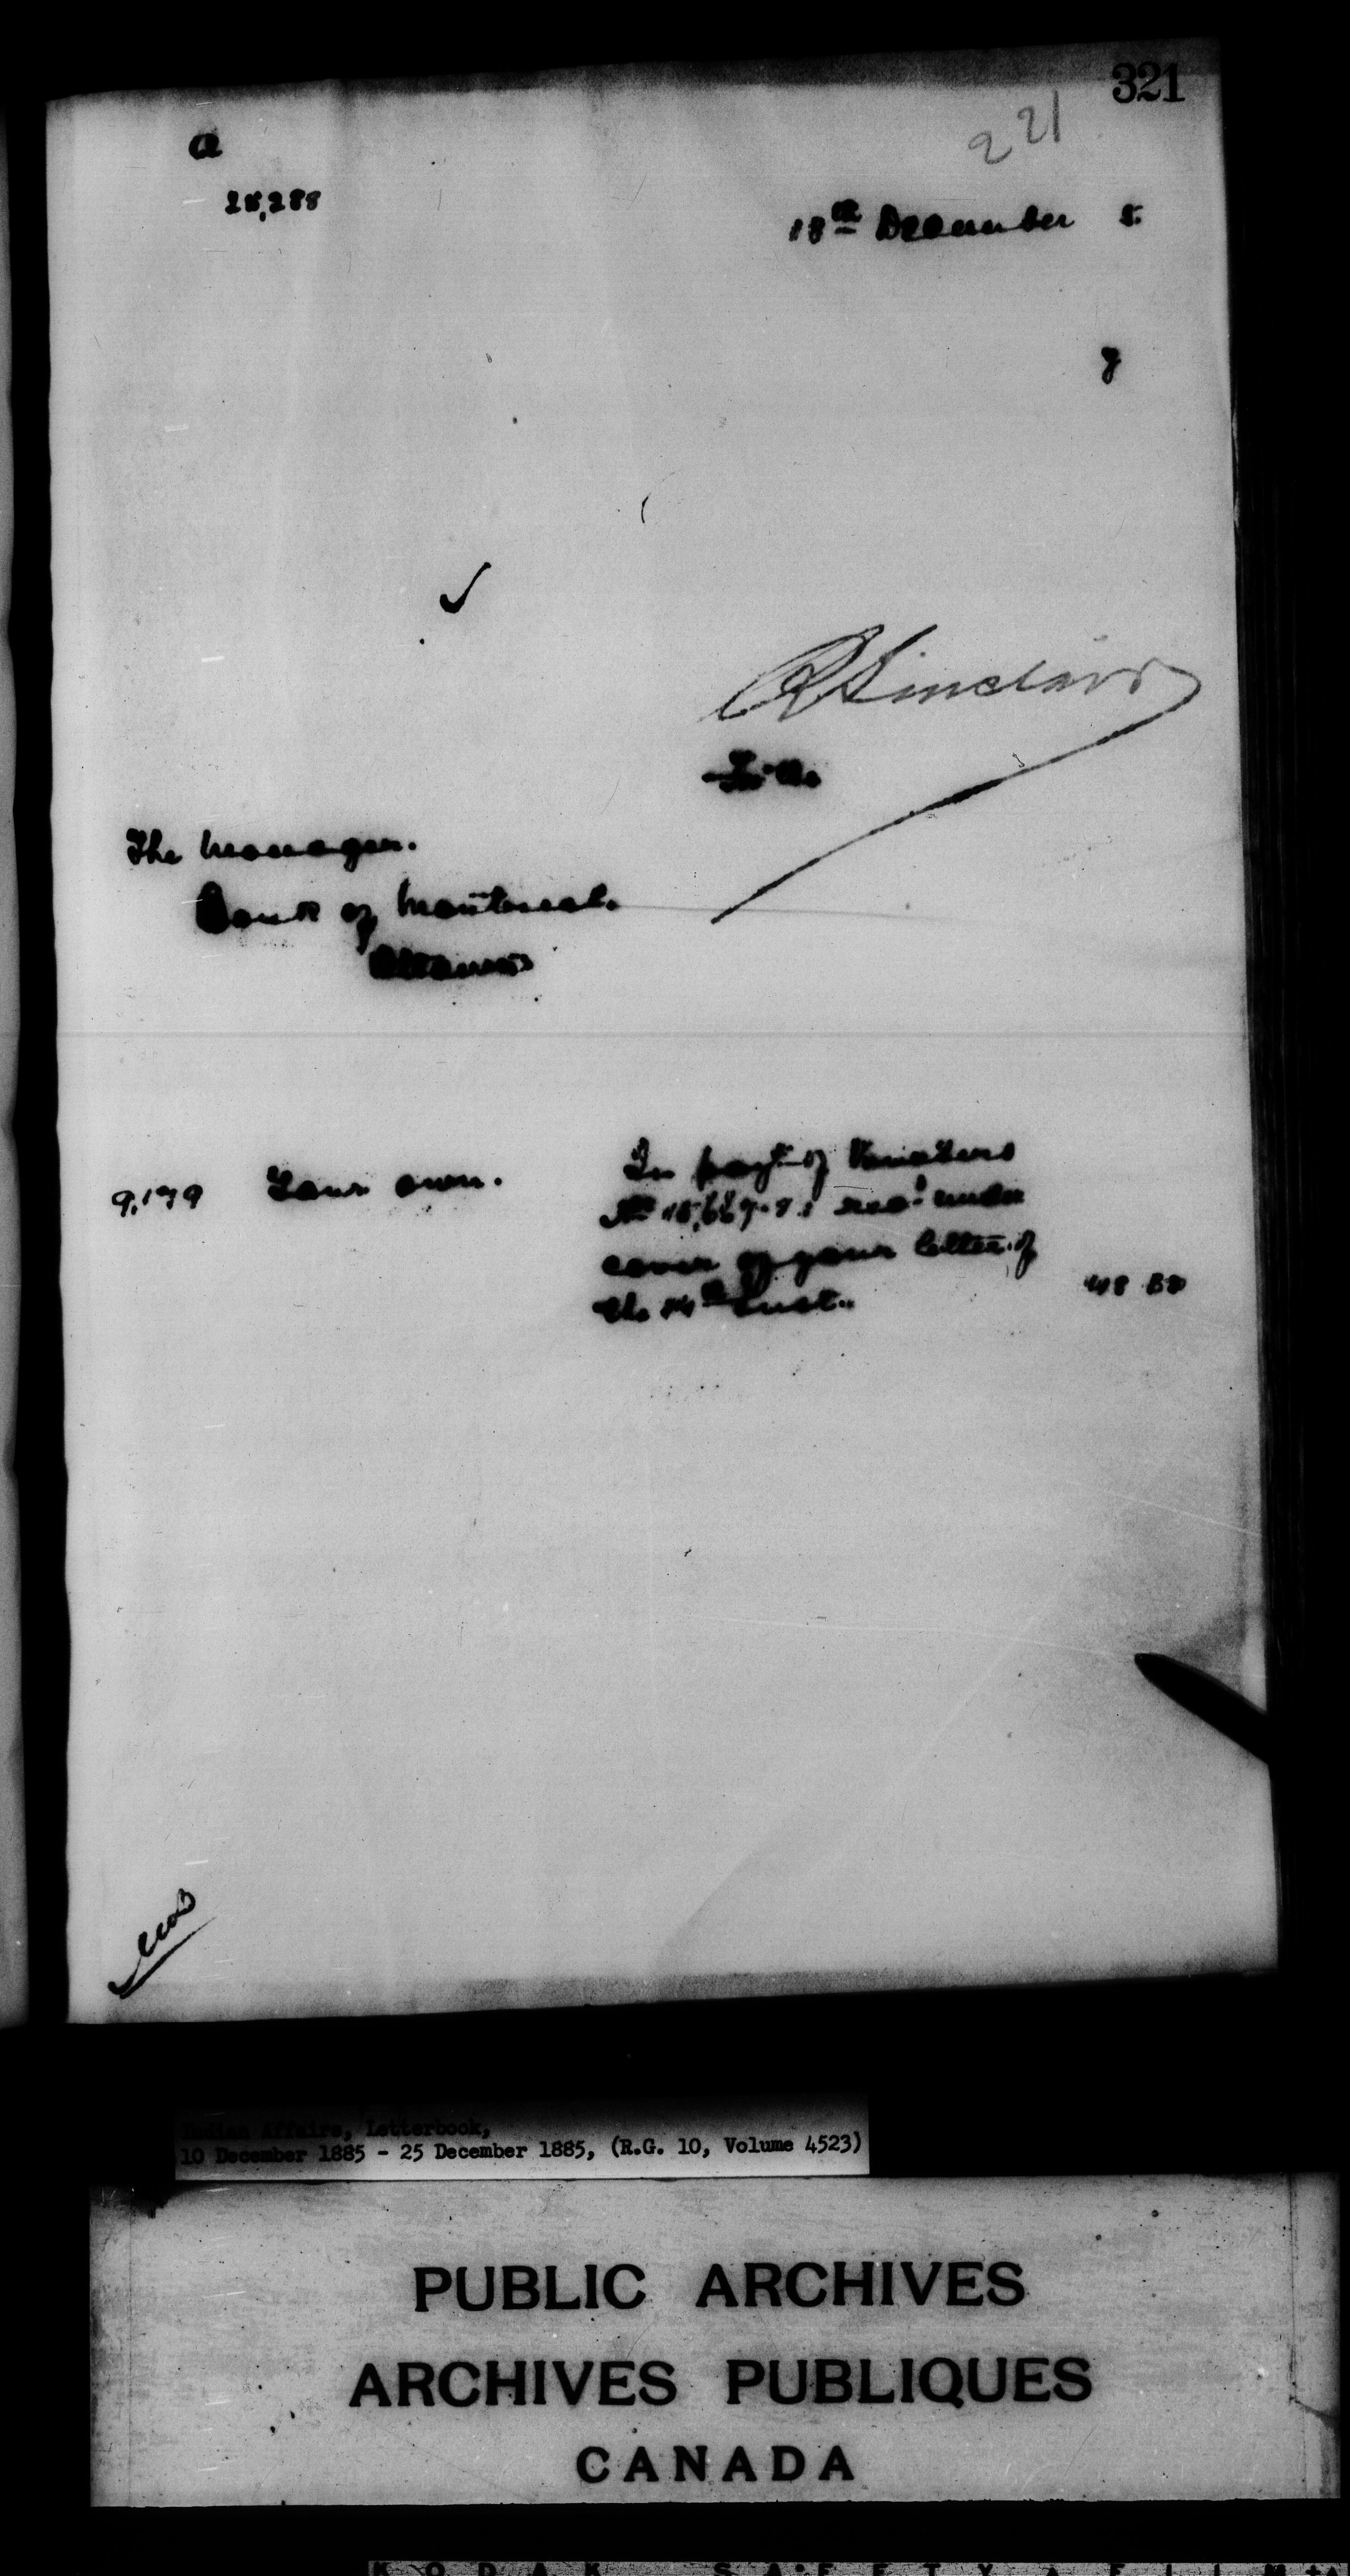 321
221
a
25,288
18th December 5.
y
R Sinclair
The Manager.
Bank of Montreal.
Ottawa
9,179 Your own.
In payt of Vouchers
rec'd under
cover of your letter of
the 14th Inst.
Indian Affairs, Letterbook,
10 December 1885 - 25 December 1885, (R.G. 10, Volume 4523)
PUBLIC ARCHIVES
ARCHIVES PUBLIQUES
CANADA
KODAK SAFETY